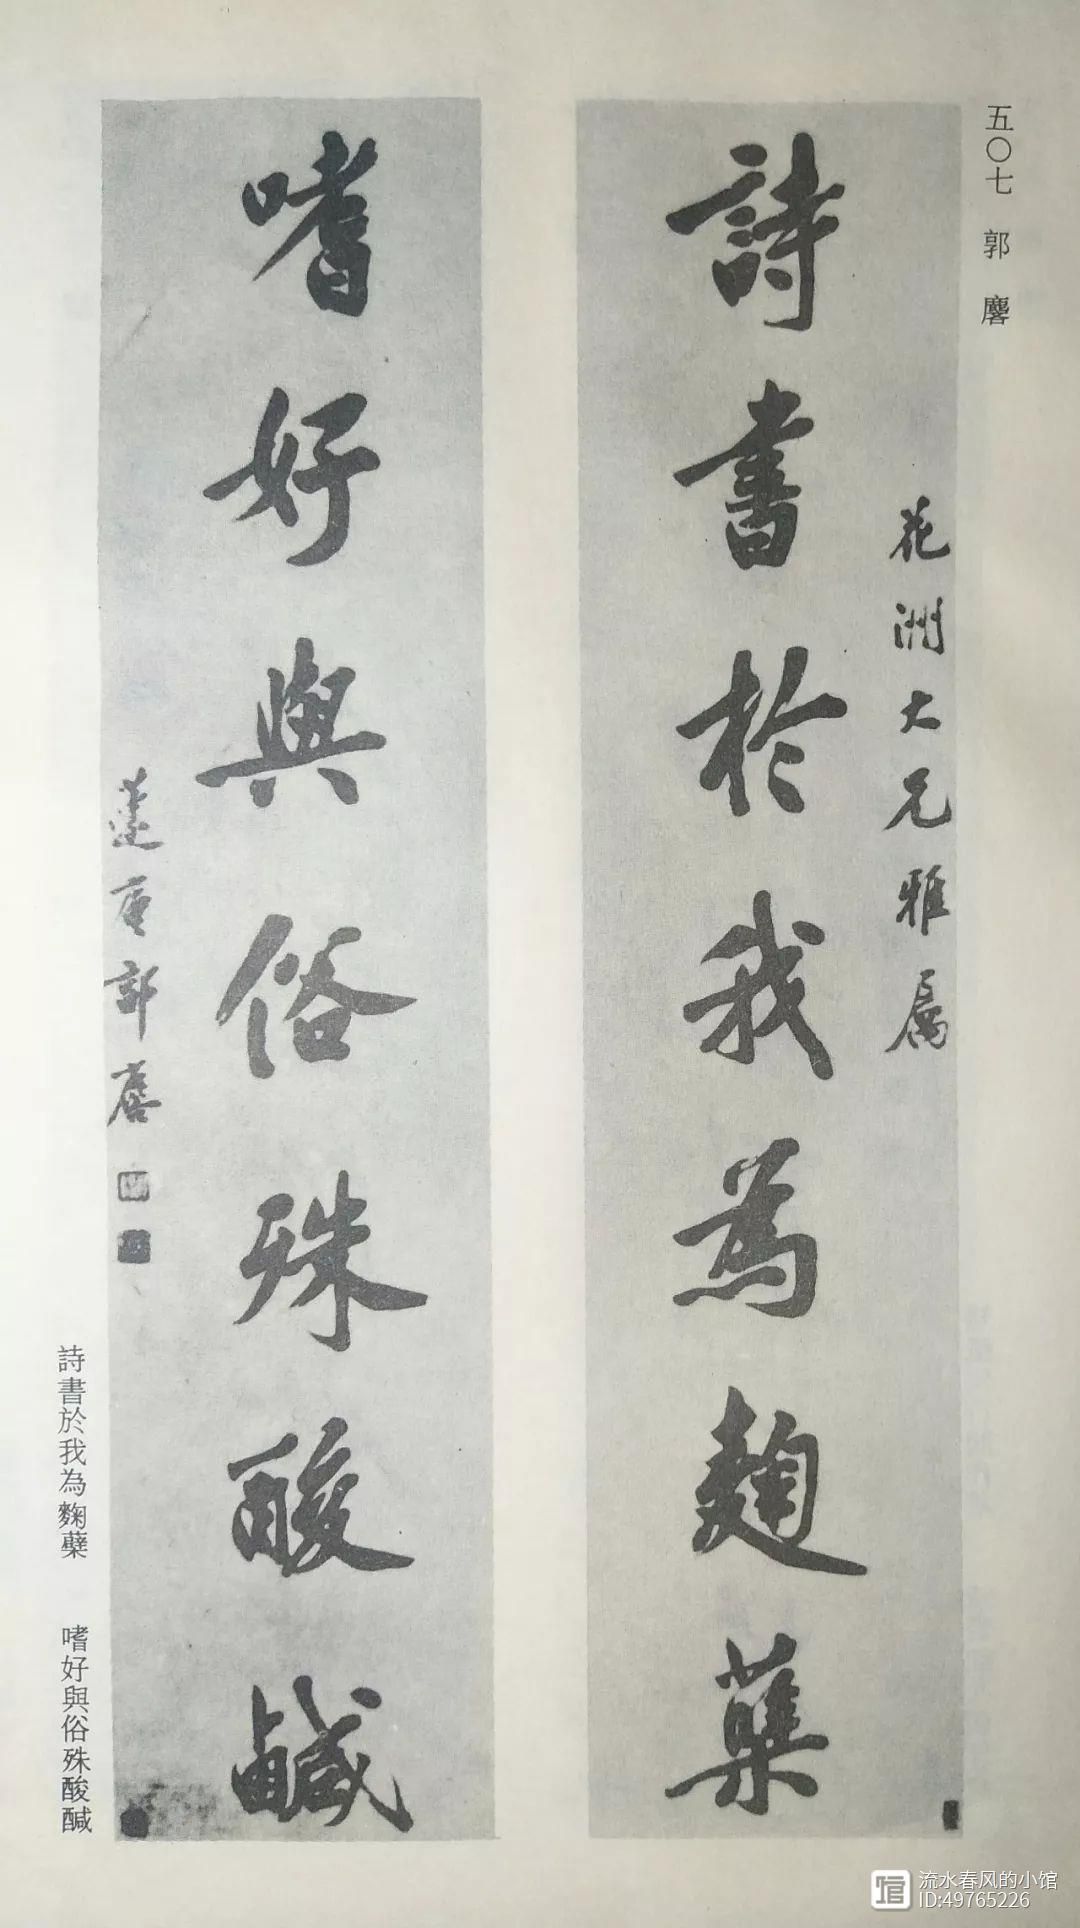 五〇七 郭 麐
花洲大兄雅屬
詩書於我為麴蘖
嗜好與俗殊酸鹹
蘧盦郭麐
詩書於我為麴蘖 嗜好與俗殊酸醎
流水春风的小馆
ID:49765226